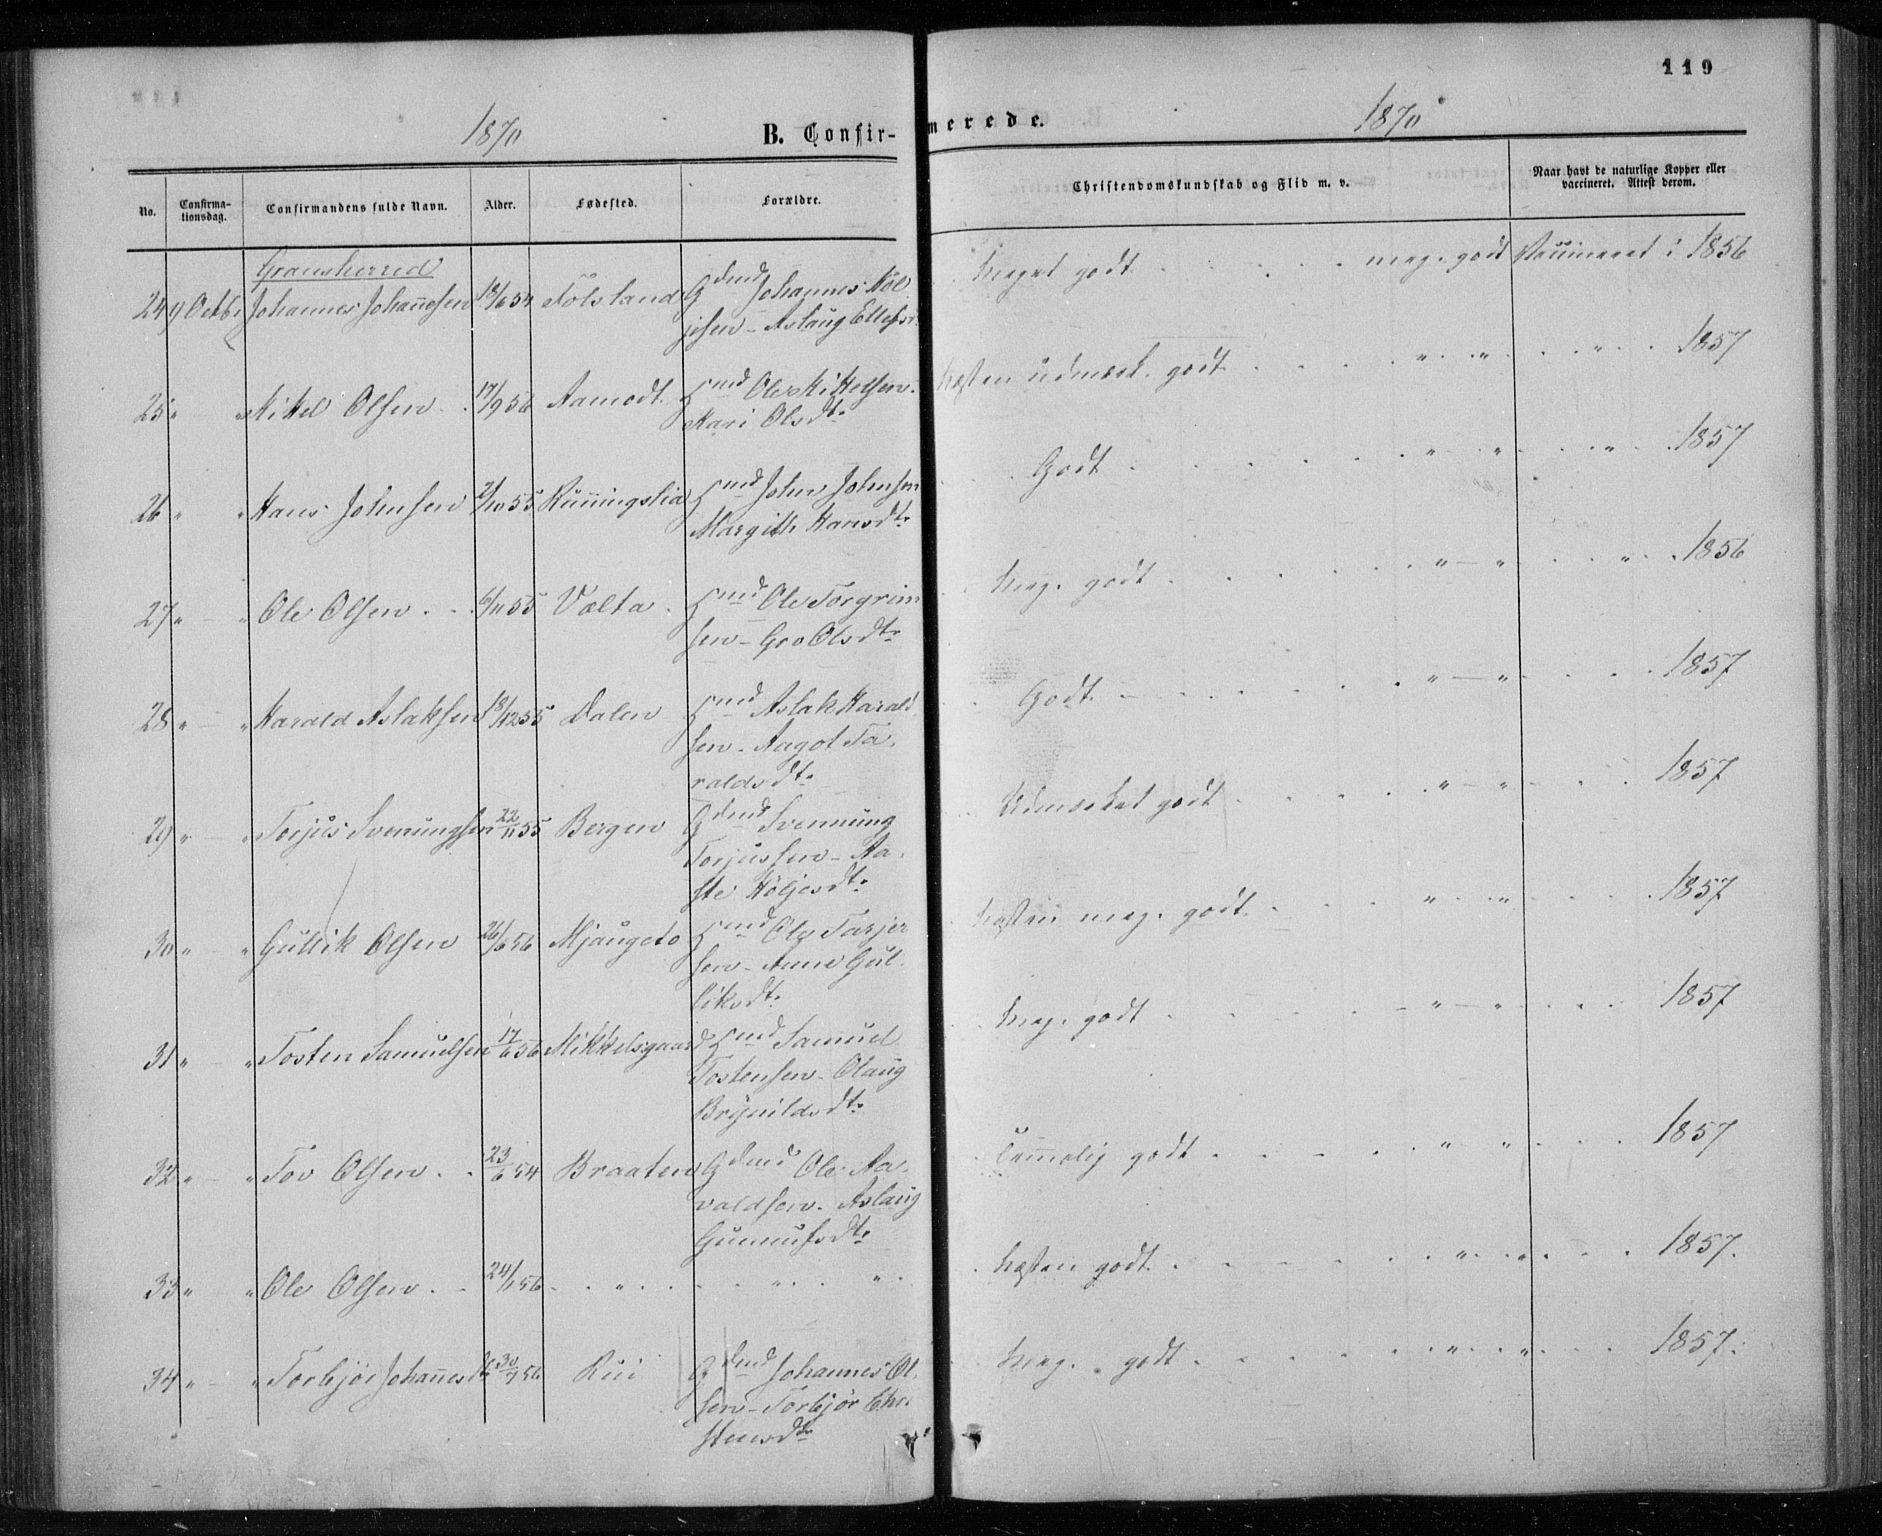 119
1870
B. Confir-
merede.
1870
No.
Confirma-
tionsdag.
Confirmandens fulde Navn.
Alder.
Fødested.
Forældre.
Christendomskundskab og Flid m. v.
Naar havt de naturlige Kopper eller
vaccineret. Attest derom.
Gransherred
24 9 Octb. Johannes Johannesen Folsland Gdmd Johannes Høl
jesen - Aslaug Ellefsd.
Meget godt . . . . . meg. godt Vaccineret i 1856
25 " " Mikel Olsen . 17/9 56 Aamodt Hmd Ole Mikkelsen.
Kari Olsdtr
Næsten udmærk. godt . . . . " . " . . " . . 1857
26 " " Hans Johnsen 2/10 55 Runningslia Hmd John Johnsen
Margith Hansdtr
Godt . . . . . . " " . . " . . 1857
27 " " Ole Olsen . . 6/11 55 Valta . Hmd Ole Torgrim
sen - Gro Olsdtr
Meg. godt . . . . . . " - " . . " . . 1856
28 " " Harald Aslaksen 18/12 55 Dalen Hmd Aslak Harald
sen - Aagot Ta-
raldsdtr
Godt . . . . . . " - " . . . . 1857
29 " " Torjus Svenungsen 22/11 55 Bergen Gdmd Svennung
Torjussen - Aa-
ste Höljesdtr
Udmærket godt . . . . . " - " . . . 1857
30 " " Gullik Olsen 26/6 56 Mjaugeto Hmd Ole Tarjer
sen - Anne Gul-
liksdtr
Næsten meg. godt . . . . " . " . . . . 1857
31 " " Tosten Samuelsen 17/6 56 Mikkelsgaard Hmd Samuel
Tostensen - Olaug
Brynildsdtr
Meg. godt . . . . . . " - " . . . 1857
32 " " Tov Olsen . . 23/6 54 Braaten Gdmd Ole Aa-
valdsen - Aslaug
Gunnufsdtr
Temmelig godt . . . . . " " . . . 1857
33 " " Ole Olsen . . 24/1 56 . . " . . . . " . . " .
Næsten godt . . . . . . " . " . . . 1857.
34 " " Torbjør Johannesdtr 30/7 56 Rui Gdmd Johannes Ol-
sen - Torbjør Chri
stensdtr
Meg. godt . . . . . . " . " . . . 1857.